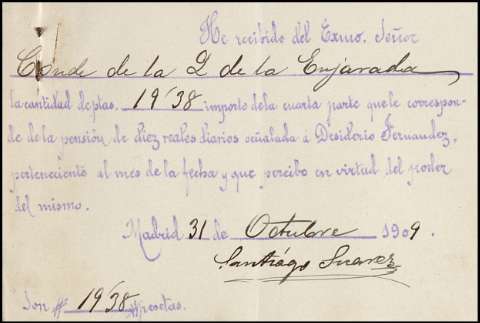 He recibido del Exmo. Señor
Conde de la Q de la Enjarada
la cantidad de ptas. 19'38 importe de la cuarta parte que le correspon-
de de la pensión de diez reales diarios señalada á Desiderio Fernandez,
perteneciente al mes de la fecha y que percibo en virtud del poder
del mismo.
Madrid 31 de Octubre 1909.
Santiago Suarez
Son ## 19'38 ## pesetas.